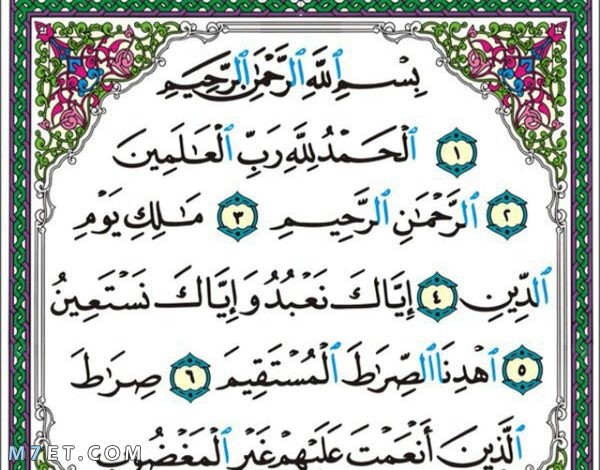 بِسْمِ ٱللَّهِ ٱلرَّحْمَٰنِ ٱلرَّحِيمِ
١ ٱلْحَمْدُ لِلَّهِ رَبِّ ٱلْعَٰلَمِينَ
٢ ٱلرَّحْمَٰنِ ٱلرَّحِيمِ ٣ مَٰلِكِ يَوْمِ
ٱلدِّينِ ٤ إِيَّاكَ نَعْبُدُ وَإِيَّاكَ نَسْتَعِينُ
٥ ٱهْدِنَا ٱلصِّرَٰطَ ٱلْمُسْتَقِيمَ ٦ صِرَٰطَ
ٱلَّذِينَ أَنْعَمْتَ عَلَيْهِمْ غَيْرِ ٱلْمَغْضُوبِ
M7ET.COM